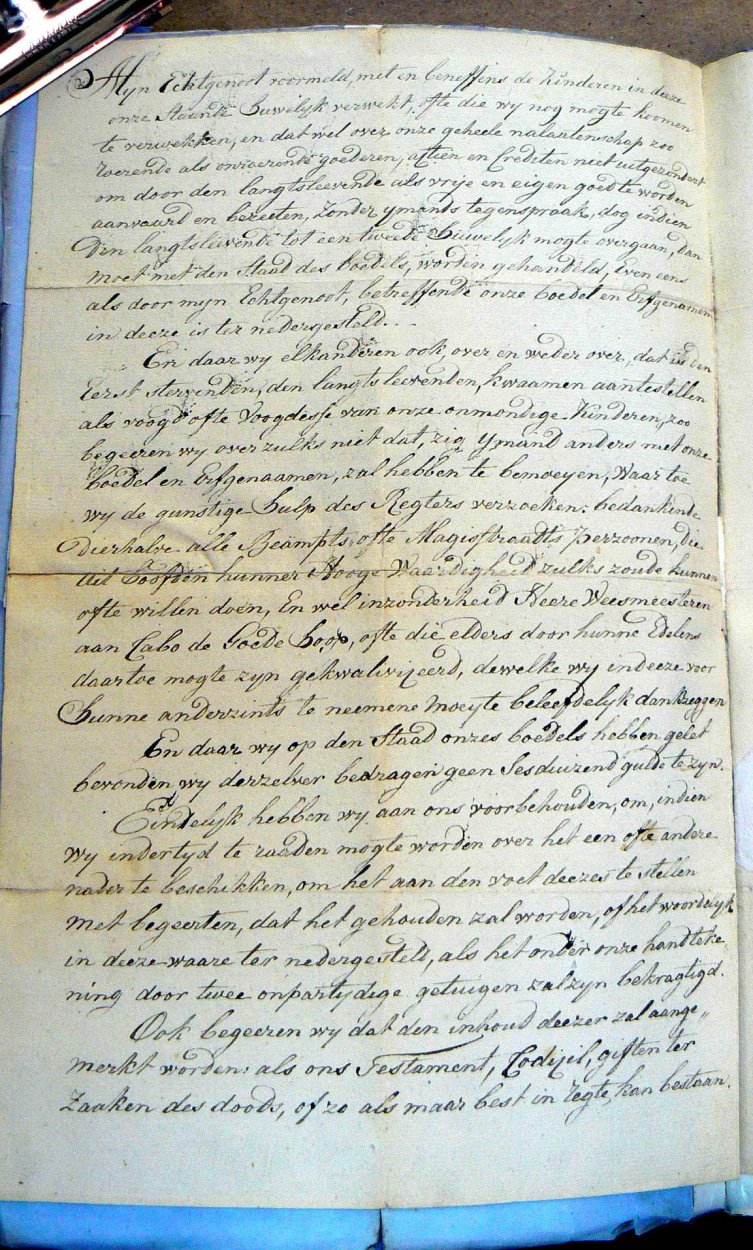 Myn Echtgenoot voormeld, met en beneffens de Kinderen in deeze
onze Staande Huwelyk verwekt, ofte die wy nog mogte koomen
te verwekken, en dat wel over onze geheele nalaatenschap zoo
roerende als onroerende goederen, actien en Crediten niet uitgezondert
om door den langtsleevende als vrije en eigen goed te worden
aanvaard en bezeeten, Zonder ymands tegenspraak, dog indien
Den langtsleevende tot een tweede Huwelyk mogte overgaan, dan
moet met den Staad des boedels, worden gehandeld, Even eens
als door myn Echtgenoot, betreffende onze boedel en Erfgenamen
in deeze is ter nedergesteld...
En daar wy elkanderen ook, over en weder over, dat is den
Eerst stervenden, den langts leevenden, kwaamen aantestellen
als voogd ofte Voogdesse van onze onmondige Kinderen, zoo
begeeren wy over zulks niet dat, zig ymand anders met onze
boedel en Erfgenaamen, zal hebben te bemoeyen, Waar toe
wy de gunstige Hulp des Regters verzoeken: bedankende
Dierhalve alle Beampts, ofte Magistraadts Perzoonen, die
uit hoofden hunner Hooge Waardigheid zulks zoude kunnen
ofte willen doen, En wel inzonderheid Heere Weesmeesteren
aan Cabo de Goede Hoop, ofte die elders door hunne Edelens
daartoe mogte zyn gekwalivizeerd, dewelke wy in deeze voor
Hunne anderzints te neemene moeyte beleefdelyk dankzeggen
En daar wy op den Staad onzes boedels hebben gelet
bevonden wy derzelver bedragen geen Sesduizend gulde te zyn.
Eindelyk hebben wy aan ons voorbehouden, om, indien
wy indertyd te raaden mogte worden over het een ofte andere
nader te beschikken, om het aan den voet deezes te stellen
met begeerten, dat het gehouden zal worden, of het woordelyk
in deeze waare ter nedergesteld, als het onder onze handteke
ning door twee onpartydige getuigen zal zyn bekragtigd.
Ook begeeren wy dat den inhoud deezer zal aange„
merkt worden: als ons Testament, Codizil, giften ter
Zaaken des doods, of zo als maar best in regte, kan bestaan.